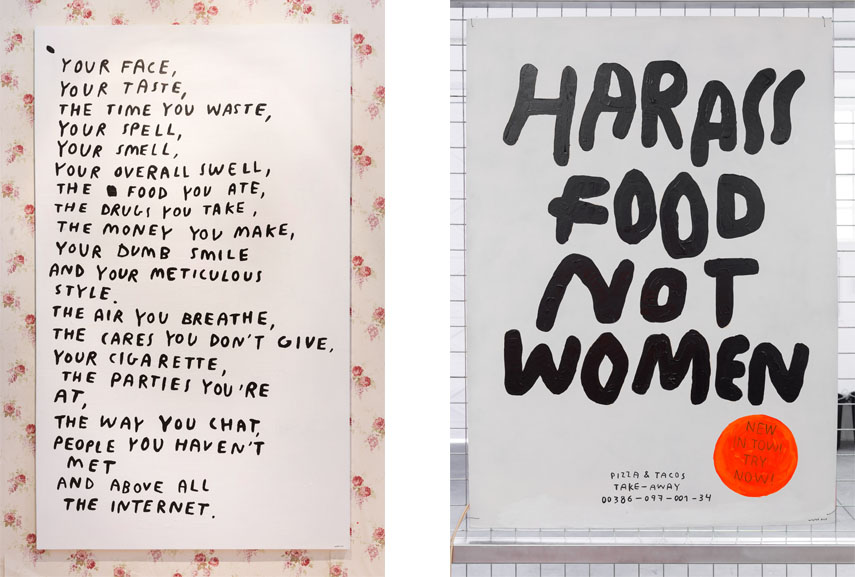 YOUR FACE,
YOUR TASTE,
THE TIME YOU WASTE,
YOUR SPELL,
YOUR SMELL,
YOUR OVERALL SWELL,
THE FOOD YOU ATE,
THE DRUGS YOU TAKE,
THE MONEY YOU MAKE,
YOUR DUMB SMILE
AND YOUR METICULOUS
STYLE.
THE AIR YOU BREATHE,
THE CARES YOU DON'T GIVE,
YOUR CIGARETTE,
THE PARTIES YOU'RE
AT,
THE WAY YOU CHAT,
PEOPLE YOU HAVEN'T
MET
AND ABOVE ALL
THE INTERNET.
HARASS
FOOD
NOT
WOMEN
NEW
IN TOWN
TRY
NOW!
PIZZA & TACOS
TAKE-AWAY
00386-097-001-34